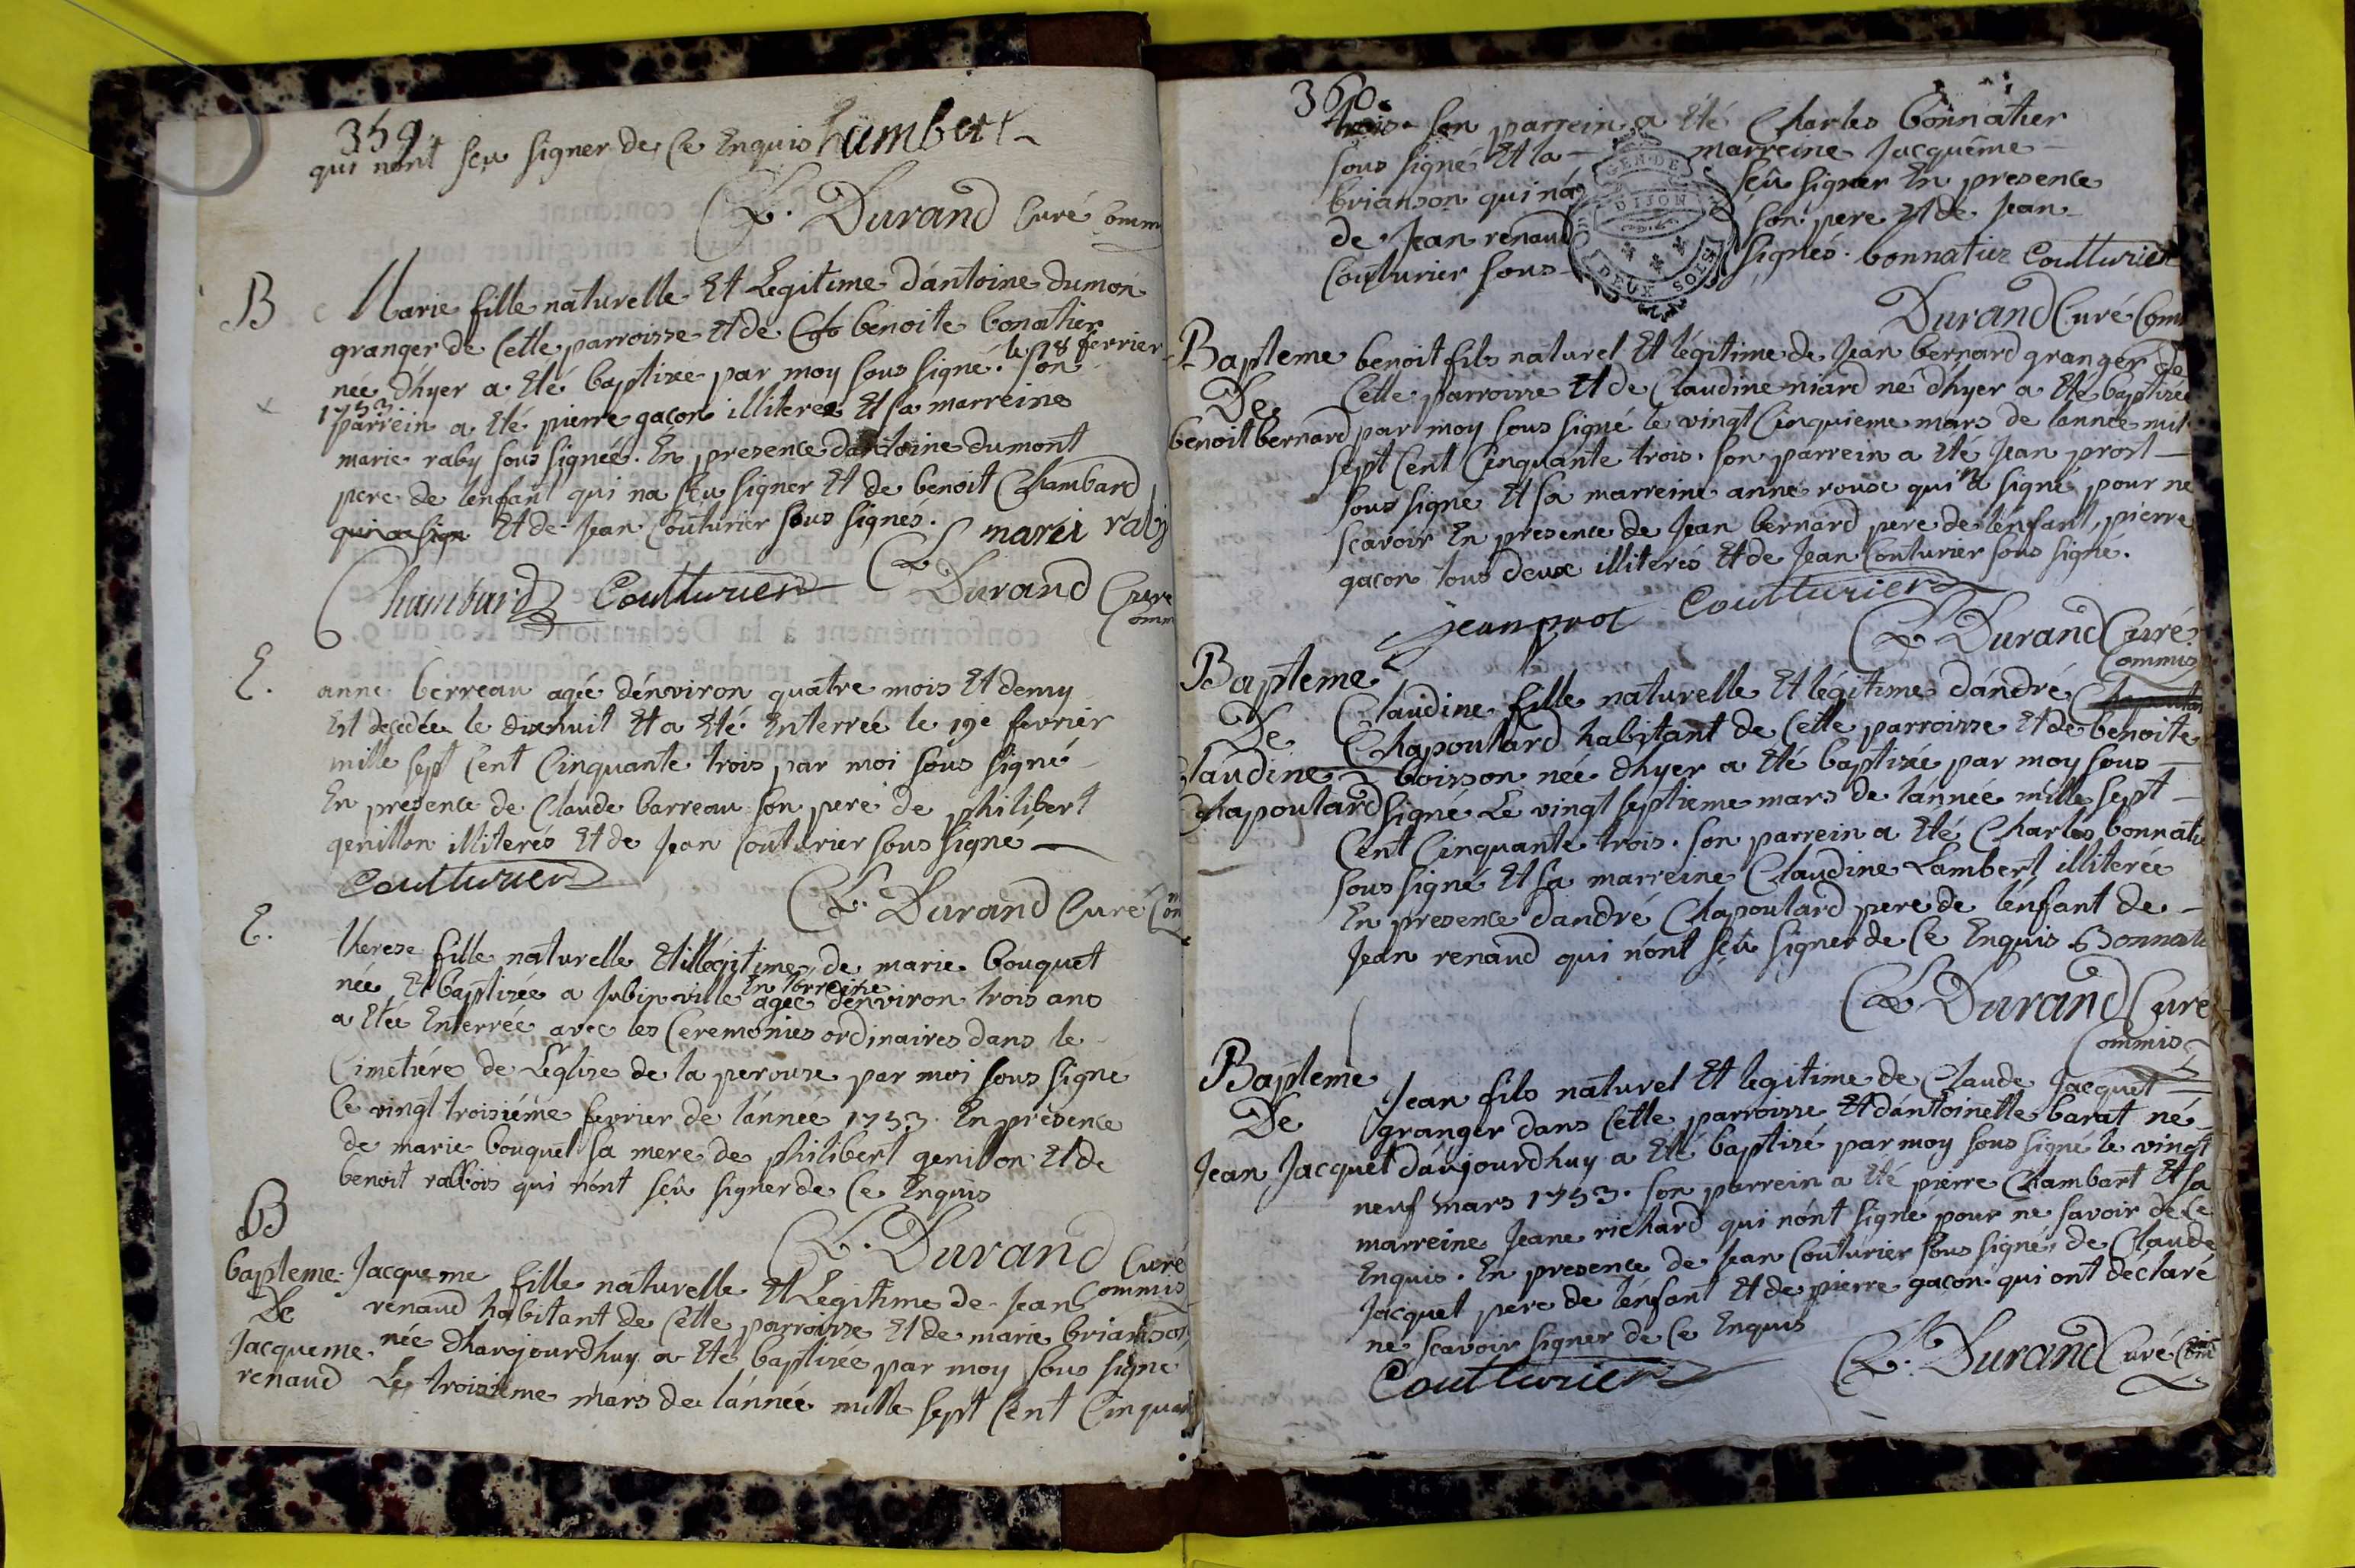 359.
qui nont sçu signer de ce Enquis Lambert
L. Durand Curé Comm
B
Marie fille naturelle Et Legitime d'antoine dumon
granger de Cette parroisse Et de benoite bonatier
née d'hyer a Eté baptizée par moy sous signé. le 18 fevrier
1753 son
parrein a Eté pierre gacon illiterée Et sa marreine
marie raby sous signée. En presence d'antoine dumont
pere de lenfant qui na sçu signer Et de benoit Chambard
Et de Jean Couturier sous signés.
marei raby
Chambard Coutturier L. Durand Curé
Comm
E.
anne berreau agée d'environ quatre mois Et demy
Est decedée le dixhuit Et a Eté Enterrée le 19e fevrier
mille sept Cent Cinquante trois par moi sous signé
En présence de Claude barreau son pere de philibert
genillon illiterés Et de Jean Couturier sous signé
Coutturier
L. Durand Curé Com
E.
therese fille naturelle Et illegitime de marie bouquet
née Et baptizée a Jubinville En lorreine agée d'environ trois ans
a Etée Enterrée avec les Ceremonies ordinaires dans le
Cimetiére de L'église de la perouze par moi sous signé
Ce vingt troisiéme fevrier de l'année 1753. En présence
de marie bouquet sa mere de philibert genillon Et de
benoit qui n'ont sçû signer de Ce Enquis
L. Durand Curé
Commis
B
bapteme
De
Jacqueme
renaud
Jacqueme fille naturelle Et Legitime de Jean
renaud habitant de Cette parroisse Et de marie brianson
née d'haujourdhuy a Eté baptizée par moy sous signé
Le troisieme mars de l'année mille sept Cent Cinquan
360.
trois son parrein a Eté Charles bonnatier
sous signé Et la marreine Jacquême
brianson qui n'a sçû signer En presence
de Jean renaud son pere Et de Jean
Couturier sous signés. bonnatier Coutturier
GEN. DE
DIJON
DEUX SOLS
Durand Curé Com
Bapteme
De
benoit bernard
benoit fils naturel Et légitime de Jean bernard granger de
Cette parroisse Et de Claudine niard né d'hyer a Eté baptizée
par moy sous signé le vingt Cinquieme mars de lannée mil
sept Cent Cinquante trois. son parrein a Eté Jean prost
sous signe Et sa marreine anne rouse qui n'a signé pour ne
scavoir En presence de Jean bernard pere de l'enfant, pierre
gacon tous deux illiterés Et de Jean Couturier sous signé.
jean prot Coutturier
L. Durand Curé
Commis
Bapteme
De
Claudine
Chapoutard
Claudine fille naturelle Et légitime d'andré
Chapoutard habitant de Cette parroisse Et de benoite
boisson née d'hyer a Eté baptizée par moy sous
signé Le vingt septieme mars de l'année mille sept
Cent Cinquante trois. son parrein a Eté Charles bonnatie
sous signé Et sa marreine Claudine Lambert illiterée
En presence d'andré Chapoutard pere de l'enfant de
Jean renaud qui n'ont sçû signer de Ce Enquis Bonnati
L. Durand Curé
Commis
Bapteme
De
Jean Jacquet
Jean fils naturel Et legitime de Claude Jacquet
granger dans Cette parroisse Et d'antoinette barat né
d'aujourdhuy a Eté baptizé par moy sous signé le vingt
neuf mars 1753. son parrein a Eté pierre Chambart Et sa
marreine Jeane richard qui n'ont signé pour ne savoir de Ce
Enquis. En presence de Jean Couturier sous signé, de Claude
Jacquet pere de l'enfant Et de pierre gacon qui ont déclaré
ne scavoir signer de Ce Enquis
Coutturier L. Durand Curé Com